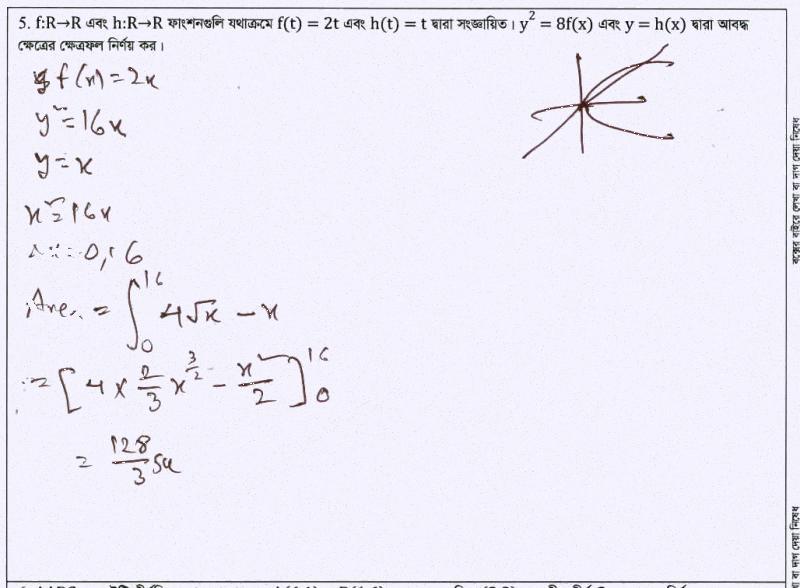 5. f:R→R এবং h:R→R ফাংশনগুলি যথাক্রমে f(t) = 2t এবং h(t) = t দ্বারা সংজ্ঞায়িত। y² = 8f(x) এবং y = h(x) দ্বারা আবদ্ধ
ক্ষেত্রের ক্ষেত্রফল নির্ণয় কর।
f(x) = 2x
y² = 16x
y = x
x² = 16x
x = 0, 16
Area = ∫₀¹⁶ 4√x − x
= [4 × 2/3 x^(3/2) − x²/2]₀¹⁶
= 128/3 su
বক্সের বাইরে লেখা বা দাগ দেয়া নিষেধ
বা দাগ দেয়া নিষেধ